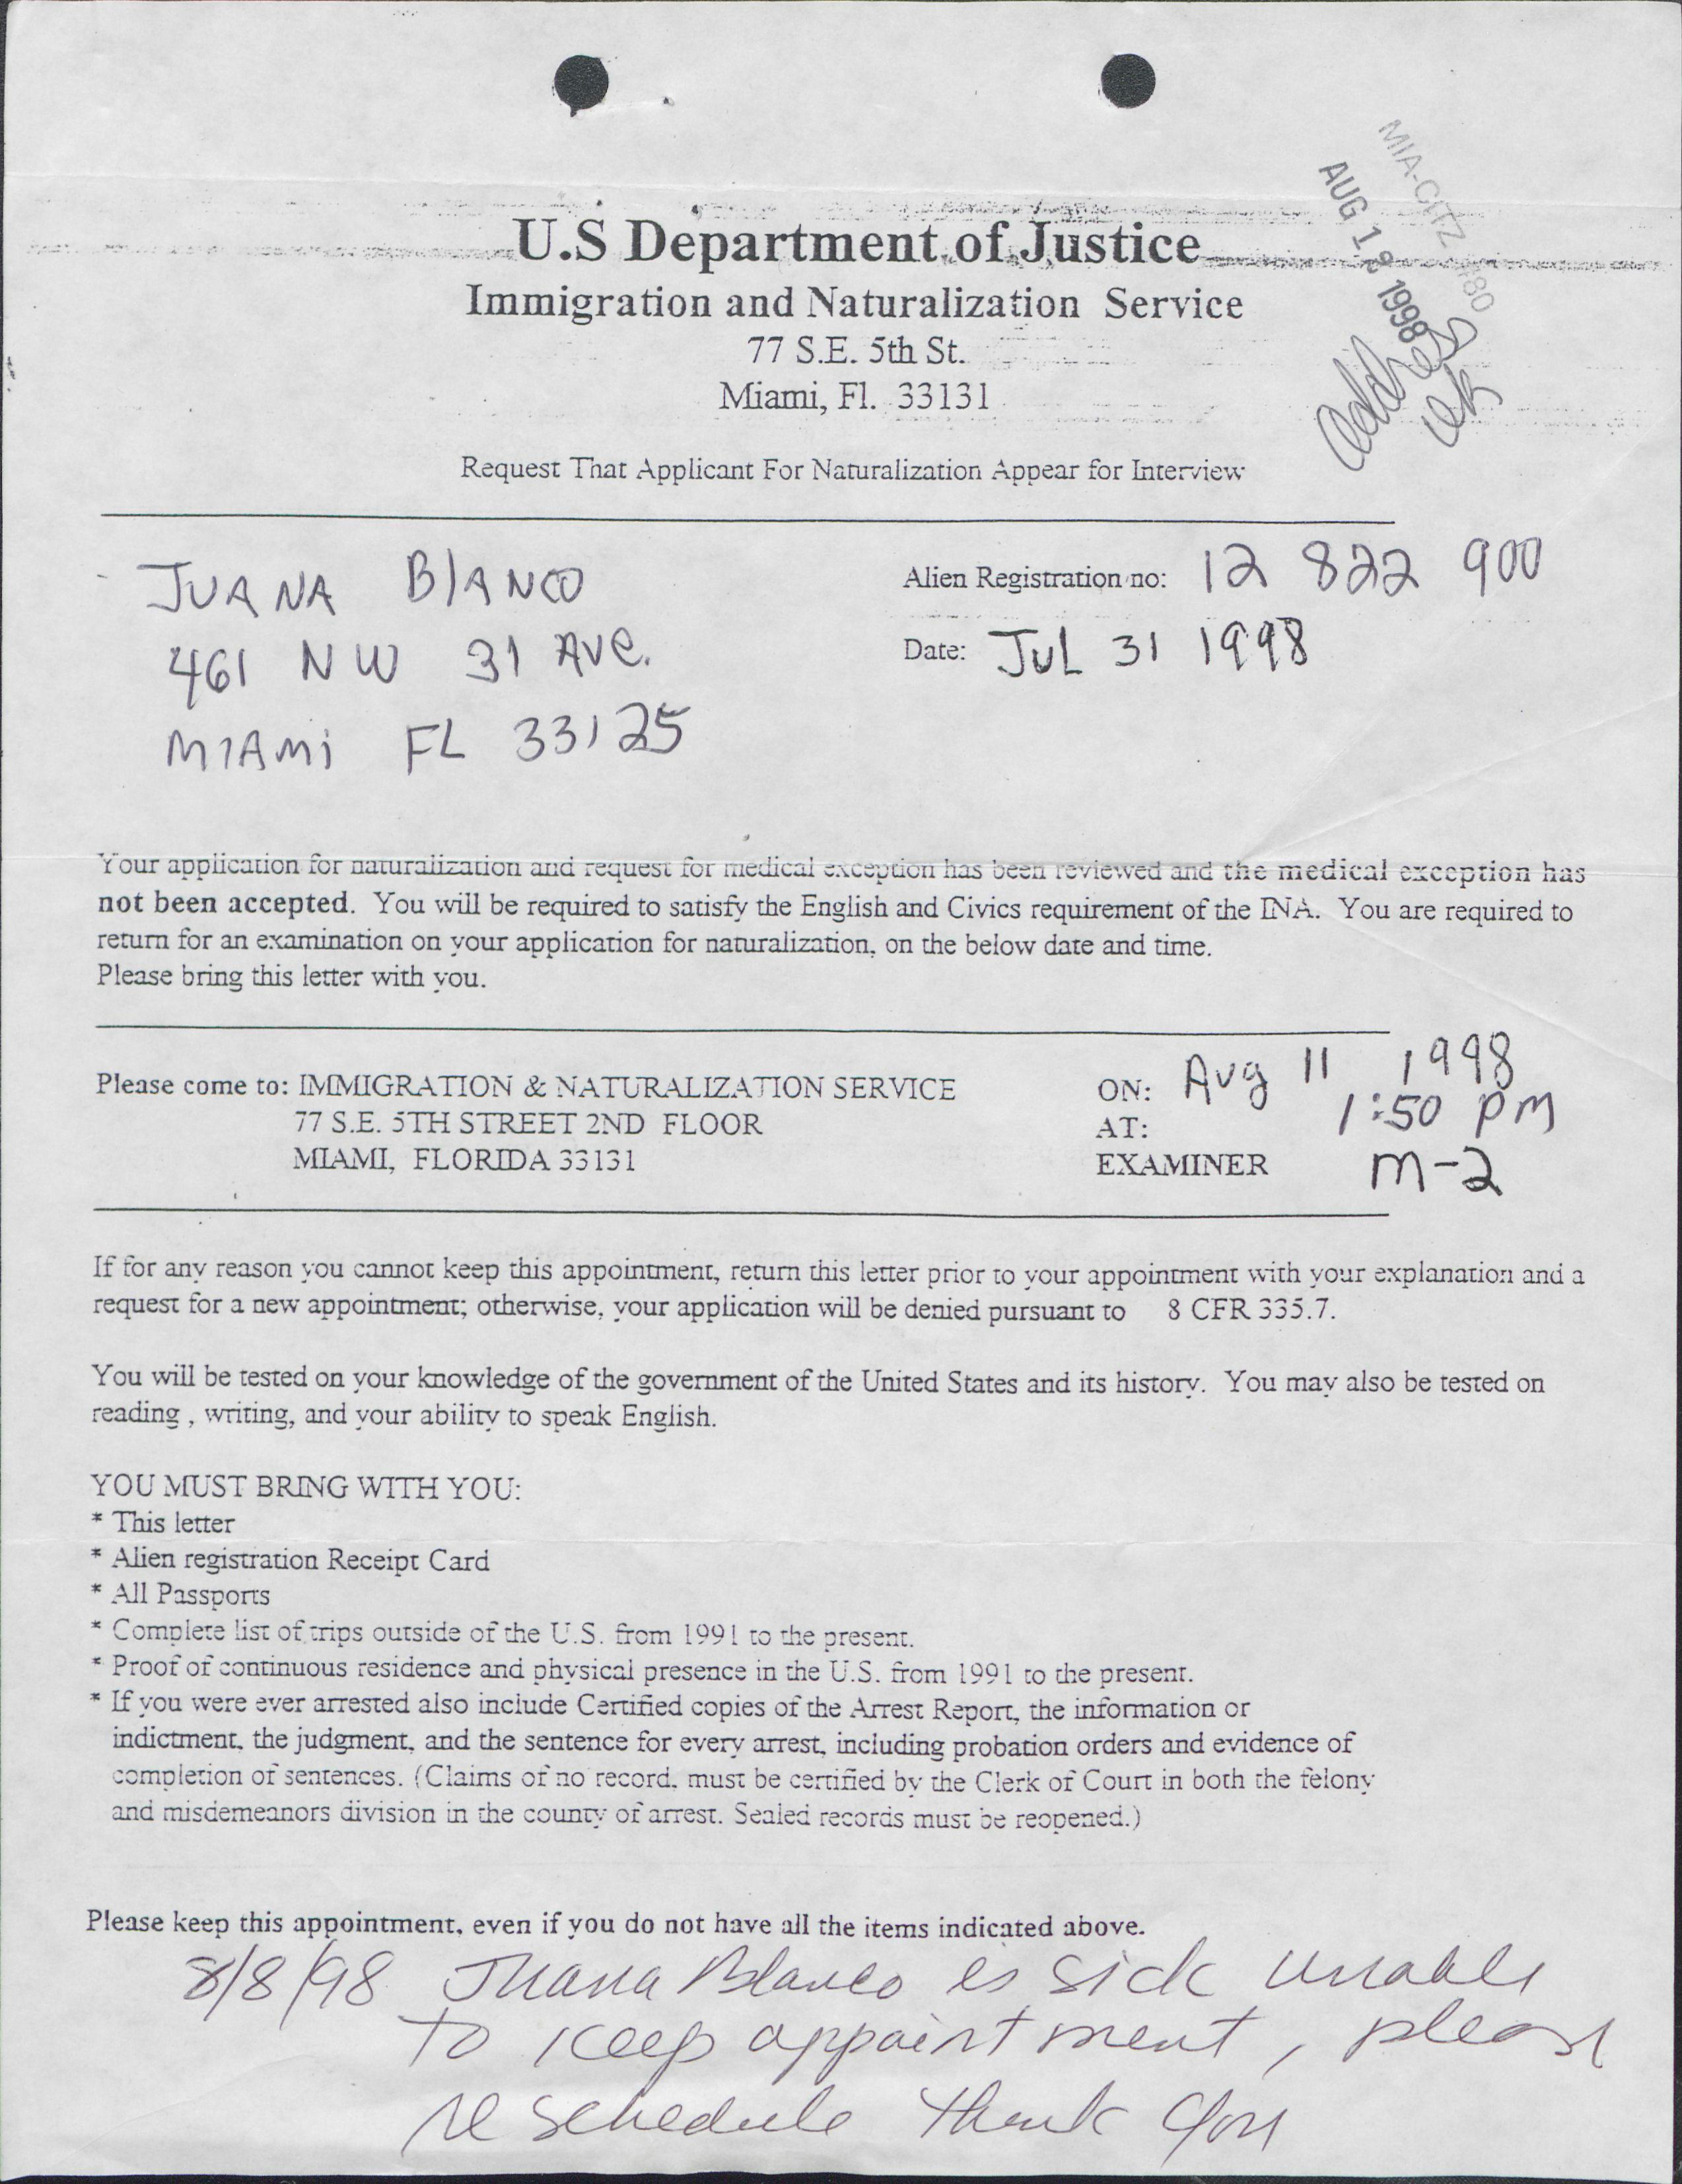 MIA-CITZ #80
AUG 12 1998
address
ok
U.S Department of Justice
Immigration and Naturalization Service
77 S.E. 5th St.
Miami, Fl. 33131
Request That Applicant For Naturalization Appear for Interview
JUANA BlANCO
461 NW 31 AVe.
MIAMi FL 33125
Alien Registration no: 12 822 900
Date: JUL 31 1998
Your application for naturalization and request for medical exception has been reviewed and the medical exception has
not been accepted. You will be required to satisfy the English and Civics requirement of the INA. You are required to
return for an examination on your application for naturalization, on the below date and time.
Please bring this letter with you.
Please come to: IMMIGRATION & NATURALIZATION SERVICE
77 S.E. 5TH STREET 2ND FLOOR
MIAMI, FLORIDA 33131
ON: Aug 11 1998
AT: 1:50 PM
EXAMINER M-2
If for any reason you cannot keep this appointment, return this letter prior to your appointment with your explanation and a
request for a new appointment; otherwise, your application will be denied pursuant to 8 CFR 335.7.
You will be tested on your knowledge of the government of the United States and its history. You may also be tested on
reading , writing, and your ability to speak English.
YOU MUST BRING WITH YOU:
* This letter
* Alien registration Receipt Card
* All Passports
* Complete list of trips outside of the U.S. from 1991 to the present.
* Proof of continuous residence and physical presence in the U.S. from 1991 to the present.
* If you were ever arrested also include Certified copies of the Arrest Report, the information or
indictment, the judgment, and the sentence for every arrest, including probation orders and evidence of
completion of sentences. (Claims of no record, must be certified by the Clerk of Court in both the felony
and misdemeanors division in the county of arrest. Sealed records must be reopened.)
Please keep this appointment, even if you do not have all the items indicated above.
8/8/98 Juana Blanco is sick unable
to keep appointment, please
re schedule thank you